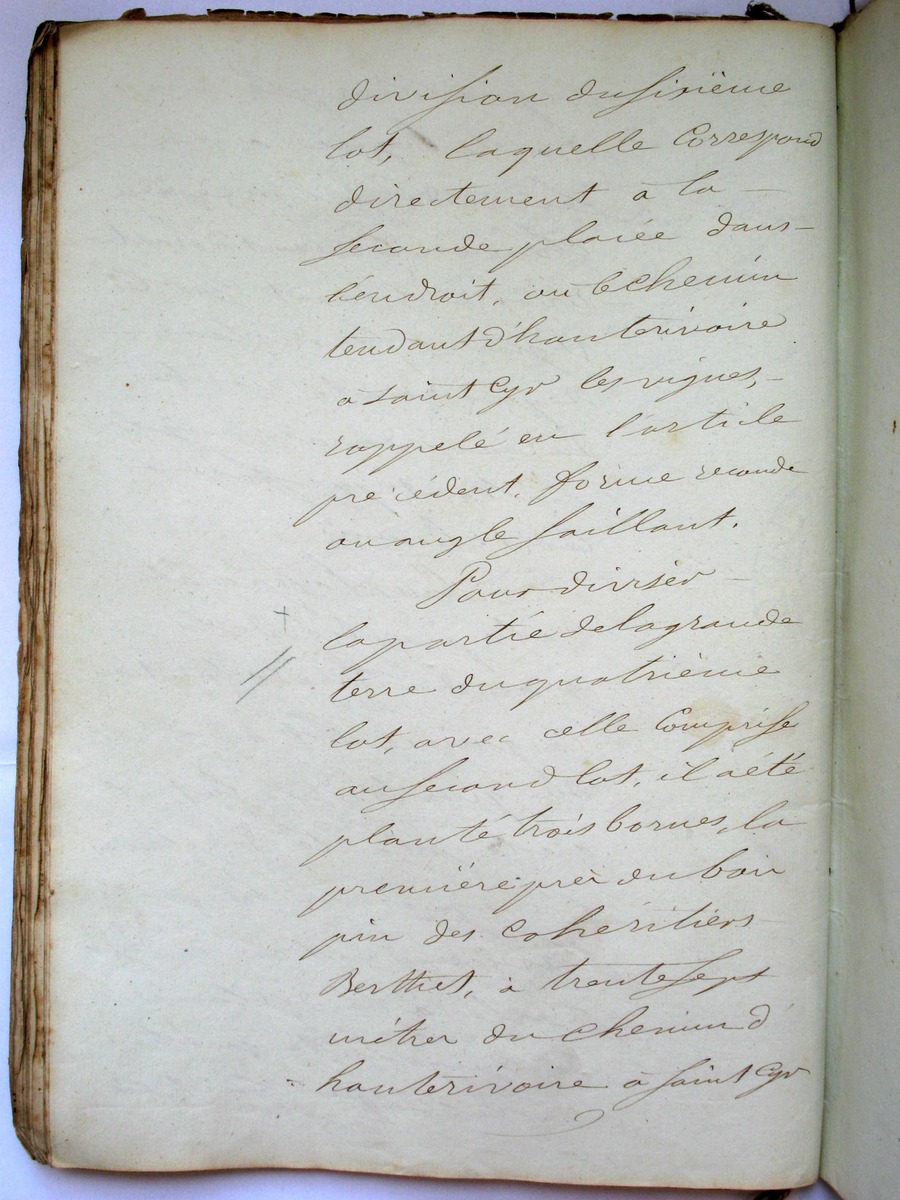 division du sixième
lot, laquelle Correspond
directement à la —
seconde placée dans —
l'endroit, ou le chemin
tendant d'hauterivoire
à saint Cyr les vignes, —
rappelé en l'article
précédent, forme seconde
ou angle saillant.
Pour diviser —
+
la partie de la grande
terre du quatrième
lot, avec celle Comprise
au second lot, il a été
planté trois bornes, la
première près du bois
pin des cohéritiers
Berthet, à trente sept
mètres du chemin d'
hauterivoire à saint Cyr